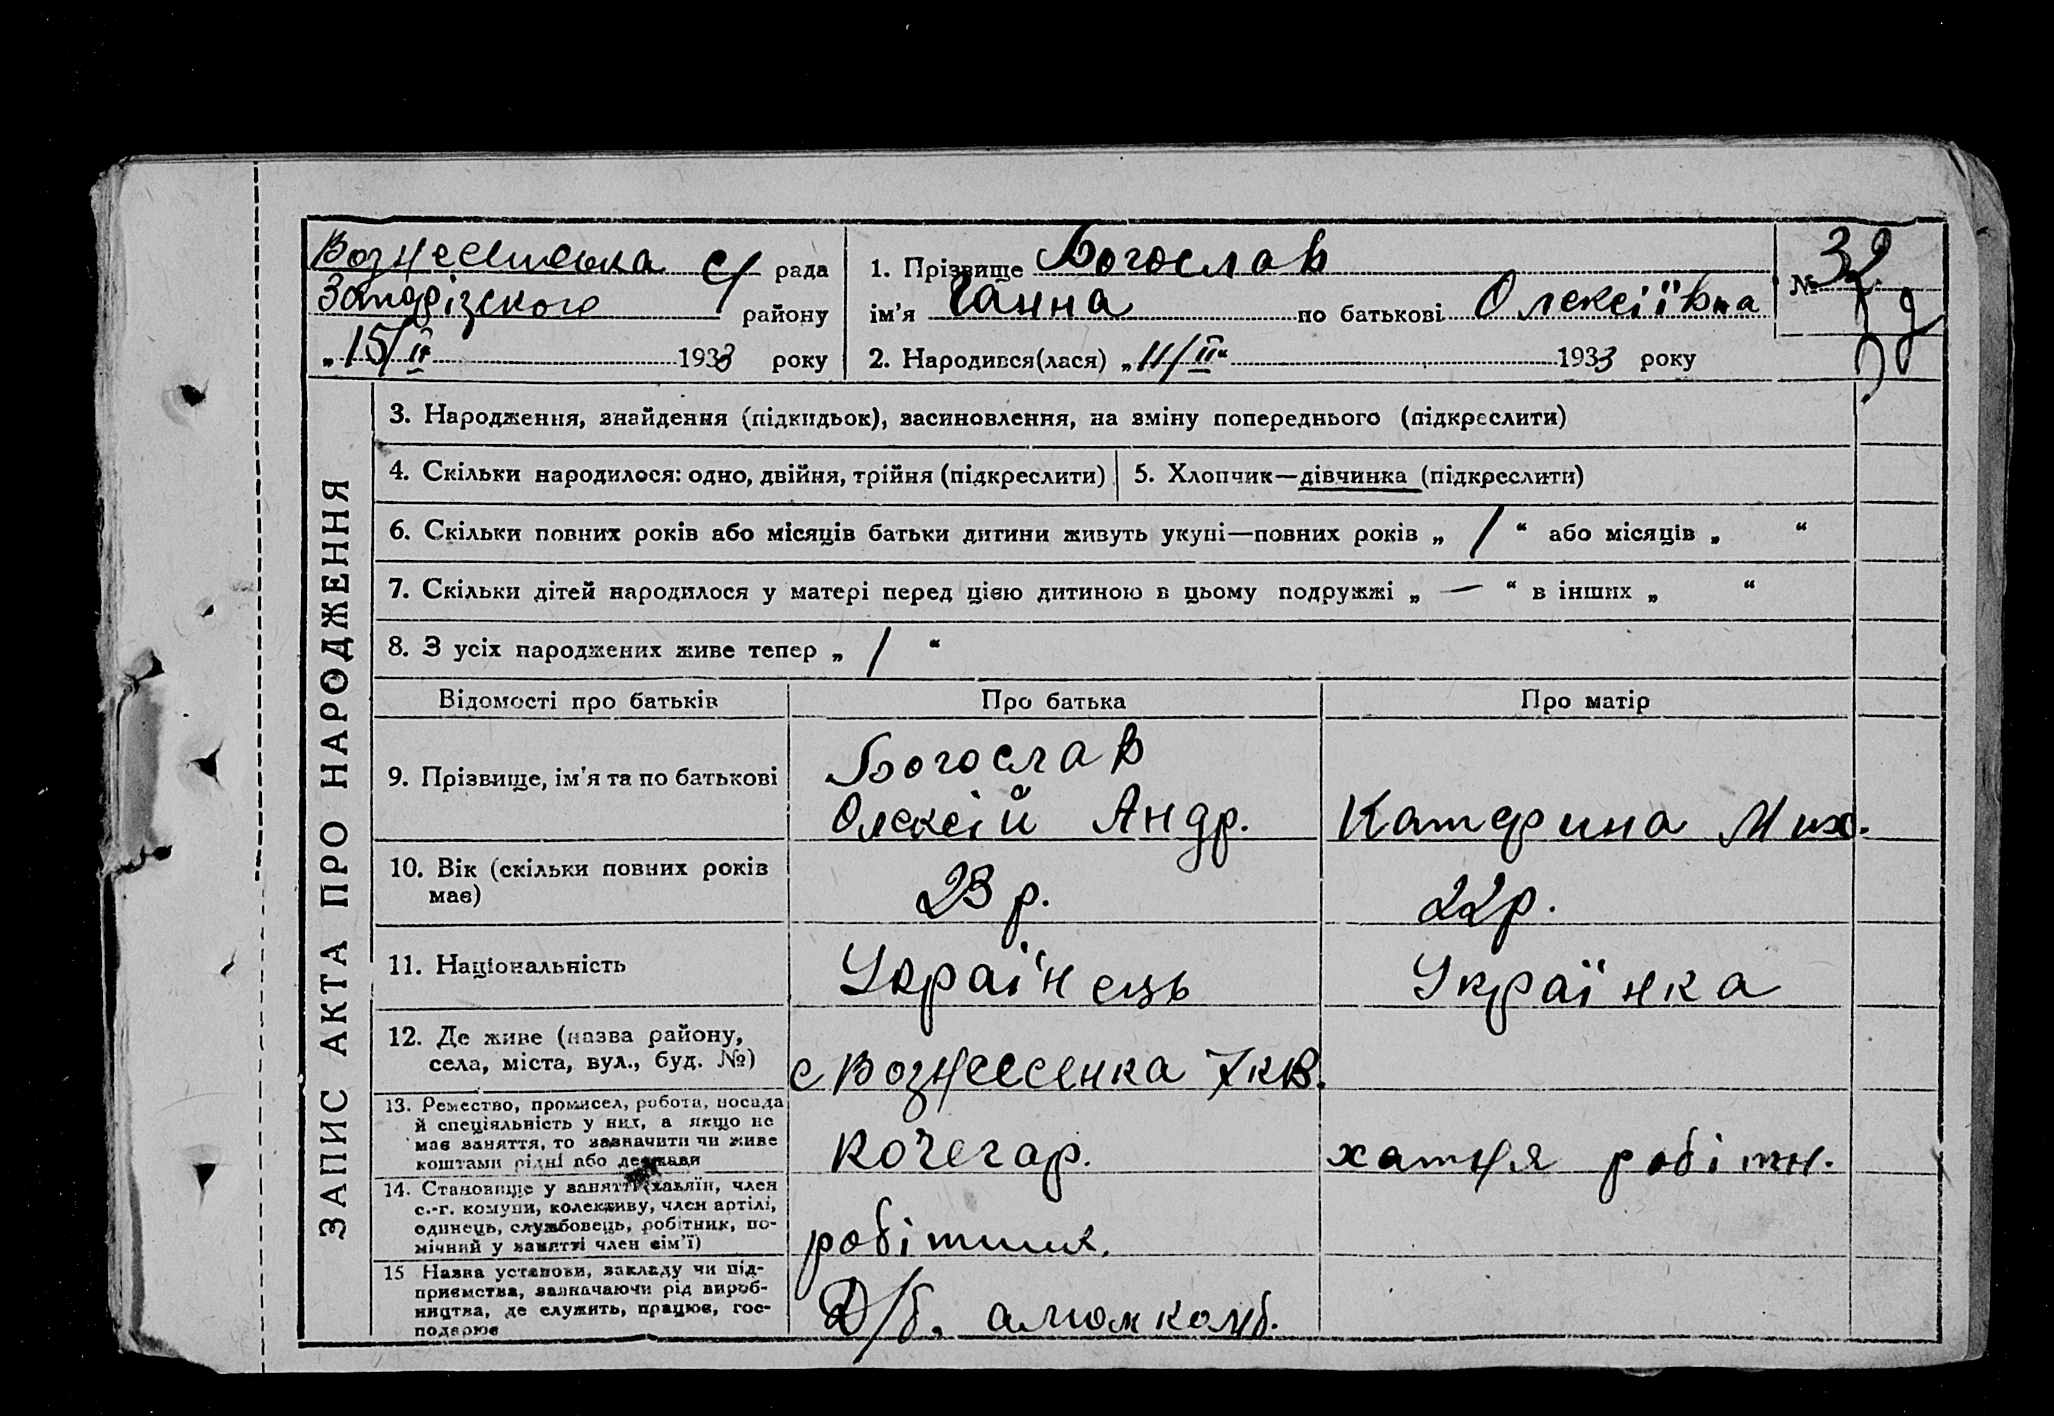 Вознесенська с/ рада
Запорізського району
„15/II 1933 року
1. Прізвище Богослав
ім'я Ганна по батькові Олексіївна
2. Народився(лася) „11/II“ 1933 року
№ 32
ЗАПИС АКТА ПРО НАРОДЖЕННЯ
3. Народження, знайдення (підкидьок), засиновлення, на зміну попереднього (підкреслити)
4. Скільки народилося: одно, двійня, трійня (підкреслити)
5. Хлопчик—дівчинка (підкреслити)
6. Скільки повних років або місяців батьки дитини живуть укупі—повних років „ 1 “ або місяців „ “
7. Скільки дітей народилося у матері перед цією дитиною в цьому подружжі „ — “ в інших „ “
8. З усіх народжених живе тепер „ 1 “
Відомості про батьків Про батька Про матір
9. Прізвище, ім'я та по батькові
Богослав
Олексій Андр.
Катерина Мих.
10. Вік (скільки повних років
має)
23 р.
22 р.
11. Національність
Українець
Українка
12. Де живе (назва району,
села, міста, вул., буд. №)
с Вознесенка 7 кв.
13. Ремество, промисел, робота, посада
й спеціяльність у них, а якщо не
має заняття, то зазначити чи живе
коштами рідні або держави
Кочегар.
хатня робітн.
14. Становище у занятті (хазяїн, член
с.-г. комуни, колективу, член артілі,
одинець, службовець, робітник, по-
мічний у занятті член сім'ї)
робітник.
15 Назва установи, закладу чи під-
приємства, зазначаючи рід вироб-
ництва, де служить, працює, гос-
подарює
Д/б. алюмкомб.